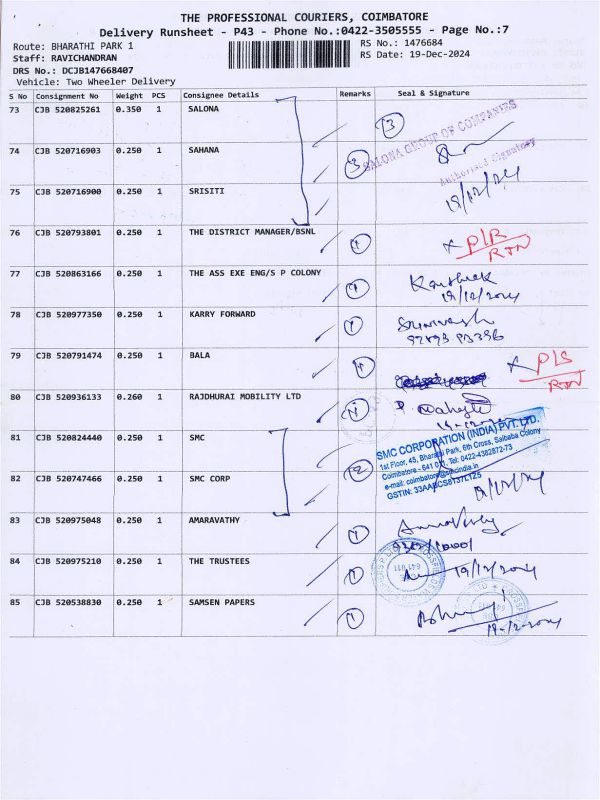 THE PROFESSIONAL COURIERS, COIMBATORE
Delivery Runsheet - P43 - Phone No.:0422-3505555 - Page No.:7
Route: BHARATHI PARK 1 RS No.: 1476684
Staff: RAVICHANDRAN RS Date: 19-Dec-2024
DRS No.: DCJB147668407
Vehicle: Two Wheeler Delivery
S No Consignment No Weight PCS Consignee Details Remarks Seal & Signature
73 CJB 520825261 0.350 1 SALONA 3
SALONA GROUP OF COMPANIES
74 CJB 520716903 0.250 1 SAHANA 3
Authorised Signatory
75 CJB 520716900 0.250 1 SRISITI 19/12/24
76 CJB 520793801 0.250 1 THE DISTRICT MANAGER/BSNL 1
RTN
77 CJB 520863166 0.250 1 THE ASS EXE ENG/S P COLONY 1 Karthick
19/12/2024
78 CJB 520977350 0.250 1 KARRY FORWARD 1
79 CJB 520791474 0.250 1 BALA 1
RTN
80 CJB 520936133 0.260 1 RAJDHURAI MOBILITY LTD 1
81 CJB 520824440 0.250 1 SMC 2
SMC CORPORATION (INDIA) PVT. LTD.
1st Floor, 45, Bharathi Park, 6th Cross, Saibaba Colony
Coimbatore - 641 0 Tel: 0422-4382872-73
82 CJB 520747466 0.250 1 SMC CORP
83 CJB 520975048 0.250 1 AMARAVATHY 1
84 CJB 520975210 0.250 1 THE TRUSTEES 1 19/12/2024
85 CJB 520538830 0.250 1 SAMSEN PAPERS 1
19-12-2024